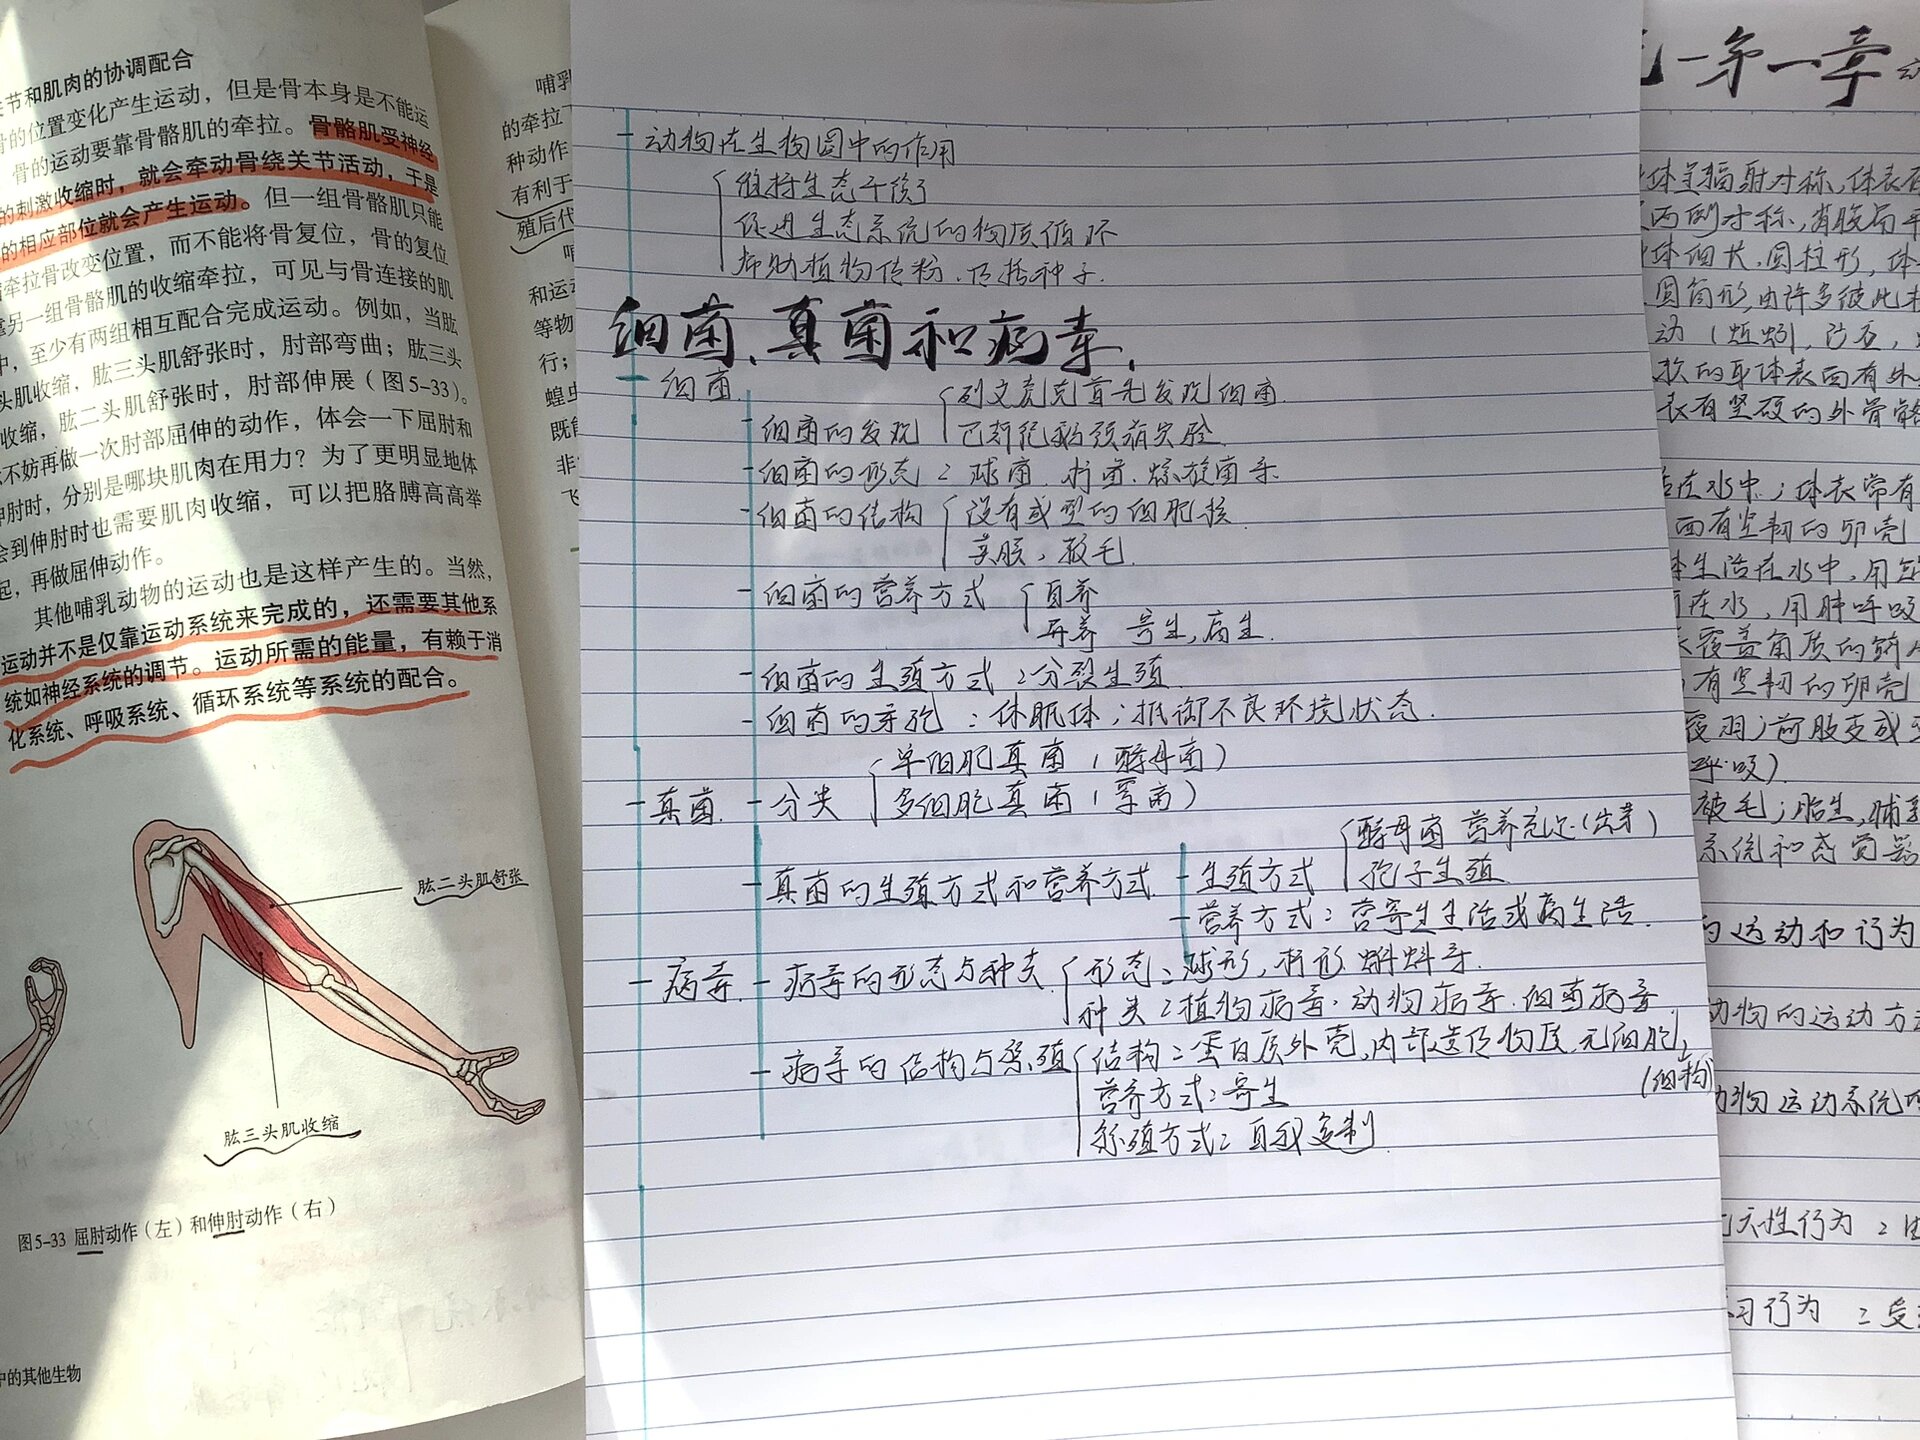 关节和肌肉的协调配合
骨的位置变化产生运动，但是骨本身是不能运
骨的运动要靠骨骼肌的牵拉。骨骼肌受神经
的刺激收缩时，就会牵动骨绕关节活动，于是
的相应部位就会产生运动。但一组骨骼肌只能
牵拉骨改变位置，而不能将骨复位，骨的复位
靠另一组骨骼肌的收缩牵拉，可见与骨连接的肌
中，至少有两组相互配合完成运动。例如，当肱
头肌收缩，肱三头肌舒张时，肘部弯曲；肱三头
收缩，肱二头肌舒张时，肘部伸展（图5-33）。
不妨再做一次肘部屈伸的动作，体会一下屈肘和
伸肘时，分别是哪块肌肉在用力？为了更明显地体
会到伸肘时也需要肌肉收缩，可以把胳膊高高举
起，再做屈伸动作。
其他哺乳动物的运动也是这样产生的。当然，
运动并不是仅靠运动系统来完成的，还需要其他系
统如神经系统的调节。运动所需的能量，有赖于消
化系统、呼吸系统、循环系统等系统的配合。
肱二头肌舒张
肱三头肌收缩
图5-33 屈肘动作（左）和伸肘动作（右）
中的其他生物
哺乳
的牵拉
种动作
有利于
殖后代
和运动
等物
行；
蝗虫
既能
非
飞
动物在生物圈中的作用
维持生态平衡
促进生态系统的物质循环
帮助植物传粉、传播种子.
细菌、真菌和病毒.
细菌.
细菌的发现
列文虎克首先发现细菌
巴斯德鹅颈瓶实验.
细菌的形态：球菌.杆菌.螺旋菌等
细菌的结构
没有成型的细胞核.
荚膜、鞭毛.
细菌的营养方式
自养
异养 寄生,腐生.
细菌的生殖方式：分裂生殖.
细菌的芽孢：休眠体；抵御不良环境状态.
真菌.
分类
单细胞真菌（酵母菌）
多细胞真菌（霉菌）
真菌的生殖方式和营养方式
生殖方式
孢子生殖.
营养方式：营寄生生活或腐生活.
病毒.
病毒的形态与种类
形态：球形,杆形.蝌蚪等.
种类：植物病毒.动物病毒.细菌病毒.
病毒的结构与繁殖
结构：蛋白质外壳,内部遗传物质.无细胞
(结构)
营养方式：寄生
繁殖方式：自我复制.
一第一章
体呈辐射对称,体表有
两侧对称,背腹扁平
体细长,圆柱形,体
圆筒形,由许多彼此相
动（蚯蚓,
软的身体表面有外
表有坚硬的外骨骼
在水中；体表常有
面有坚韧的卵壳
生活在水中,用鳃
在水,用肺呼吸
覆盖角质的鳞片
有坚韧的卵壳
覆羽；前肢变成翼
呼吸）.
被毛；胎生,哺乳
系统和感觉器
的运动和行为
动物的运动方式
动物运动系统的
天性行为：由
习行为：受